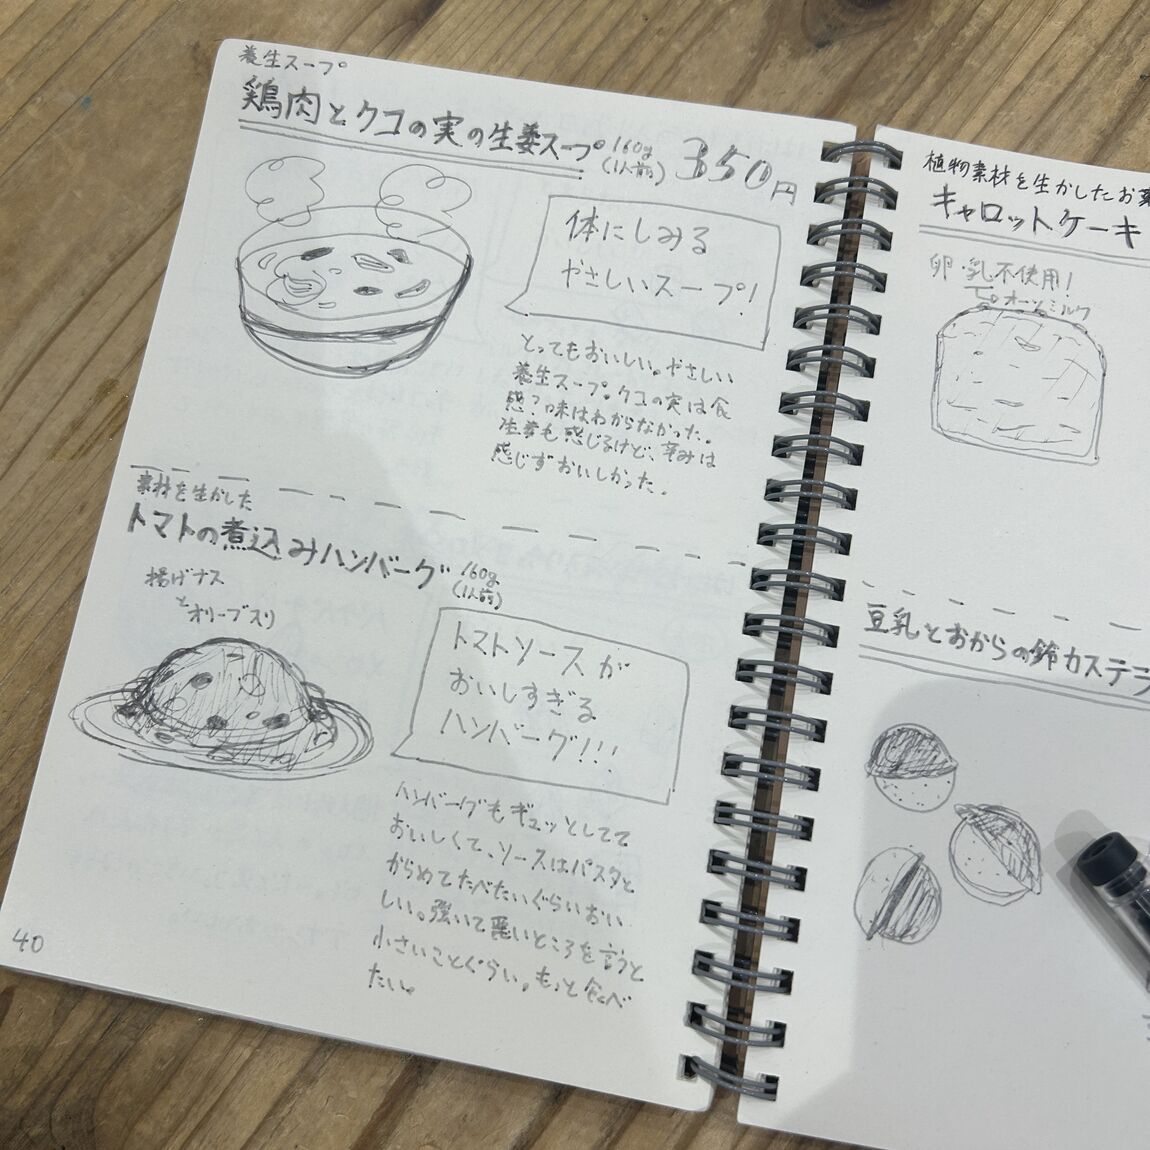 養生スープ
鶏肉とクコの実の生姜スープ 160g (1人前) 350円
体にしみる
やさしいスープ!
とってもおいしい。やさしい
養生スープ。クコの実は食
感?味はわからなかった。
生姜も感じるけど、辛みは
感じずおいしかった。
素材を生かした
トマトの煮込みハンバーグ 160g (1人前)
揚げナス
と
オリーブ入り
トマトソースが
おいしすぎる
ハンバーグ!!!
ハンバーグもギュッとしてて
おいしくて、ソースはパスタと
からめてたべたいぐらいおい
しい。強いて悪いところを言うと
小さいことぐらい。もっと食べ
たい。
40
植物素材を生かしたお菓
キャロットケーキ
卵・乳不使用!
オームミルク
豆乳とおからの鈴カステラ